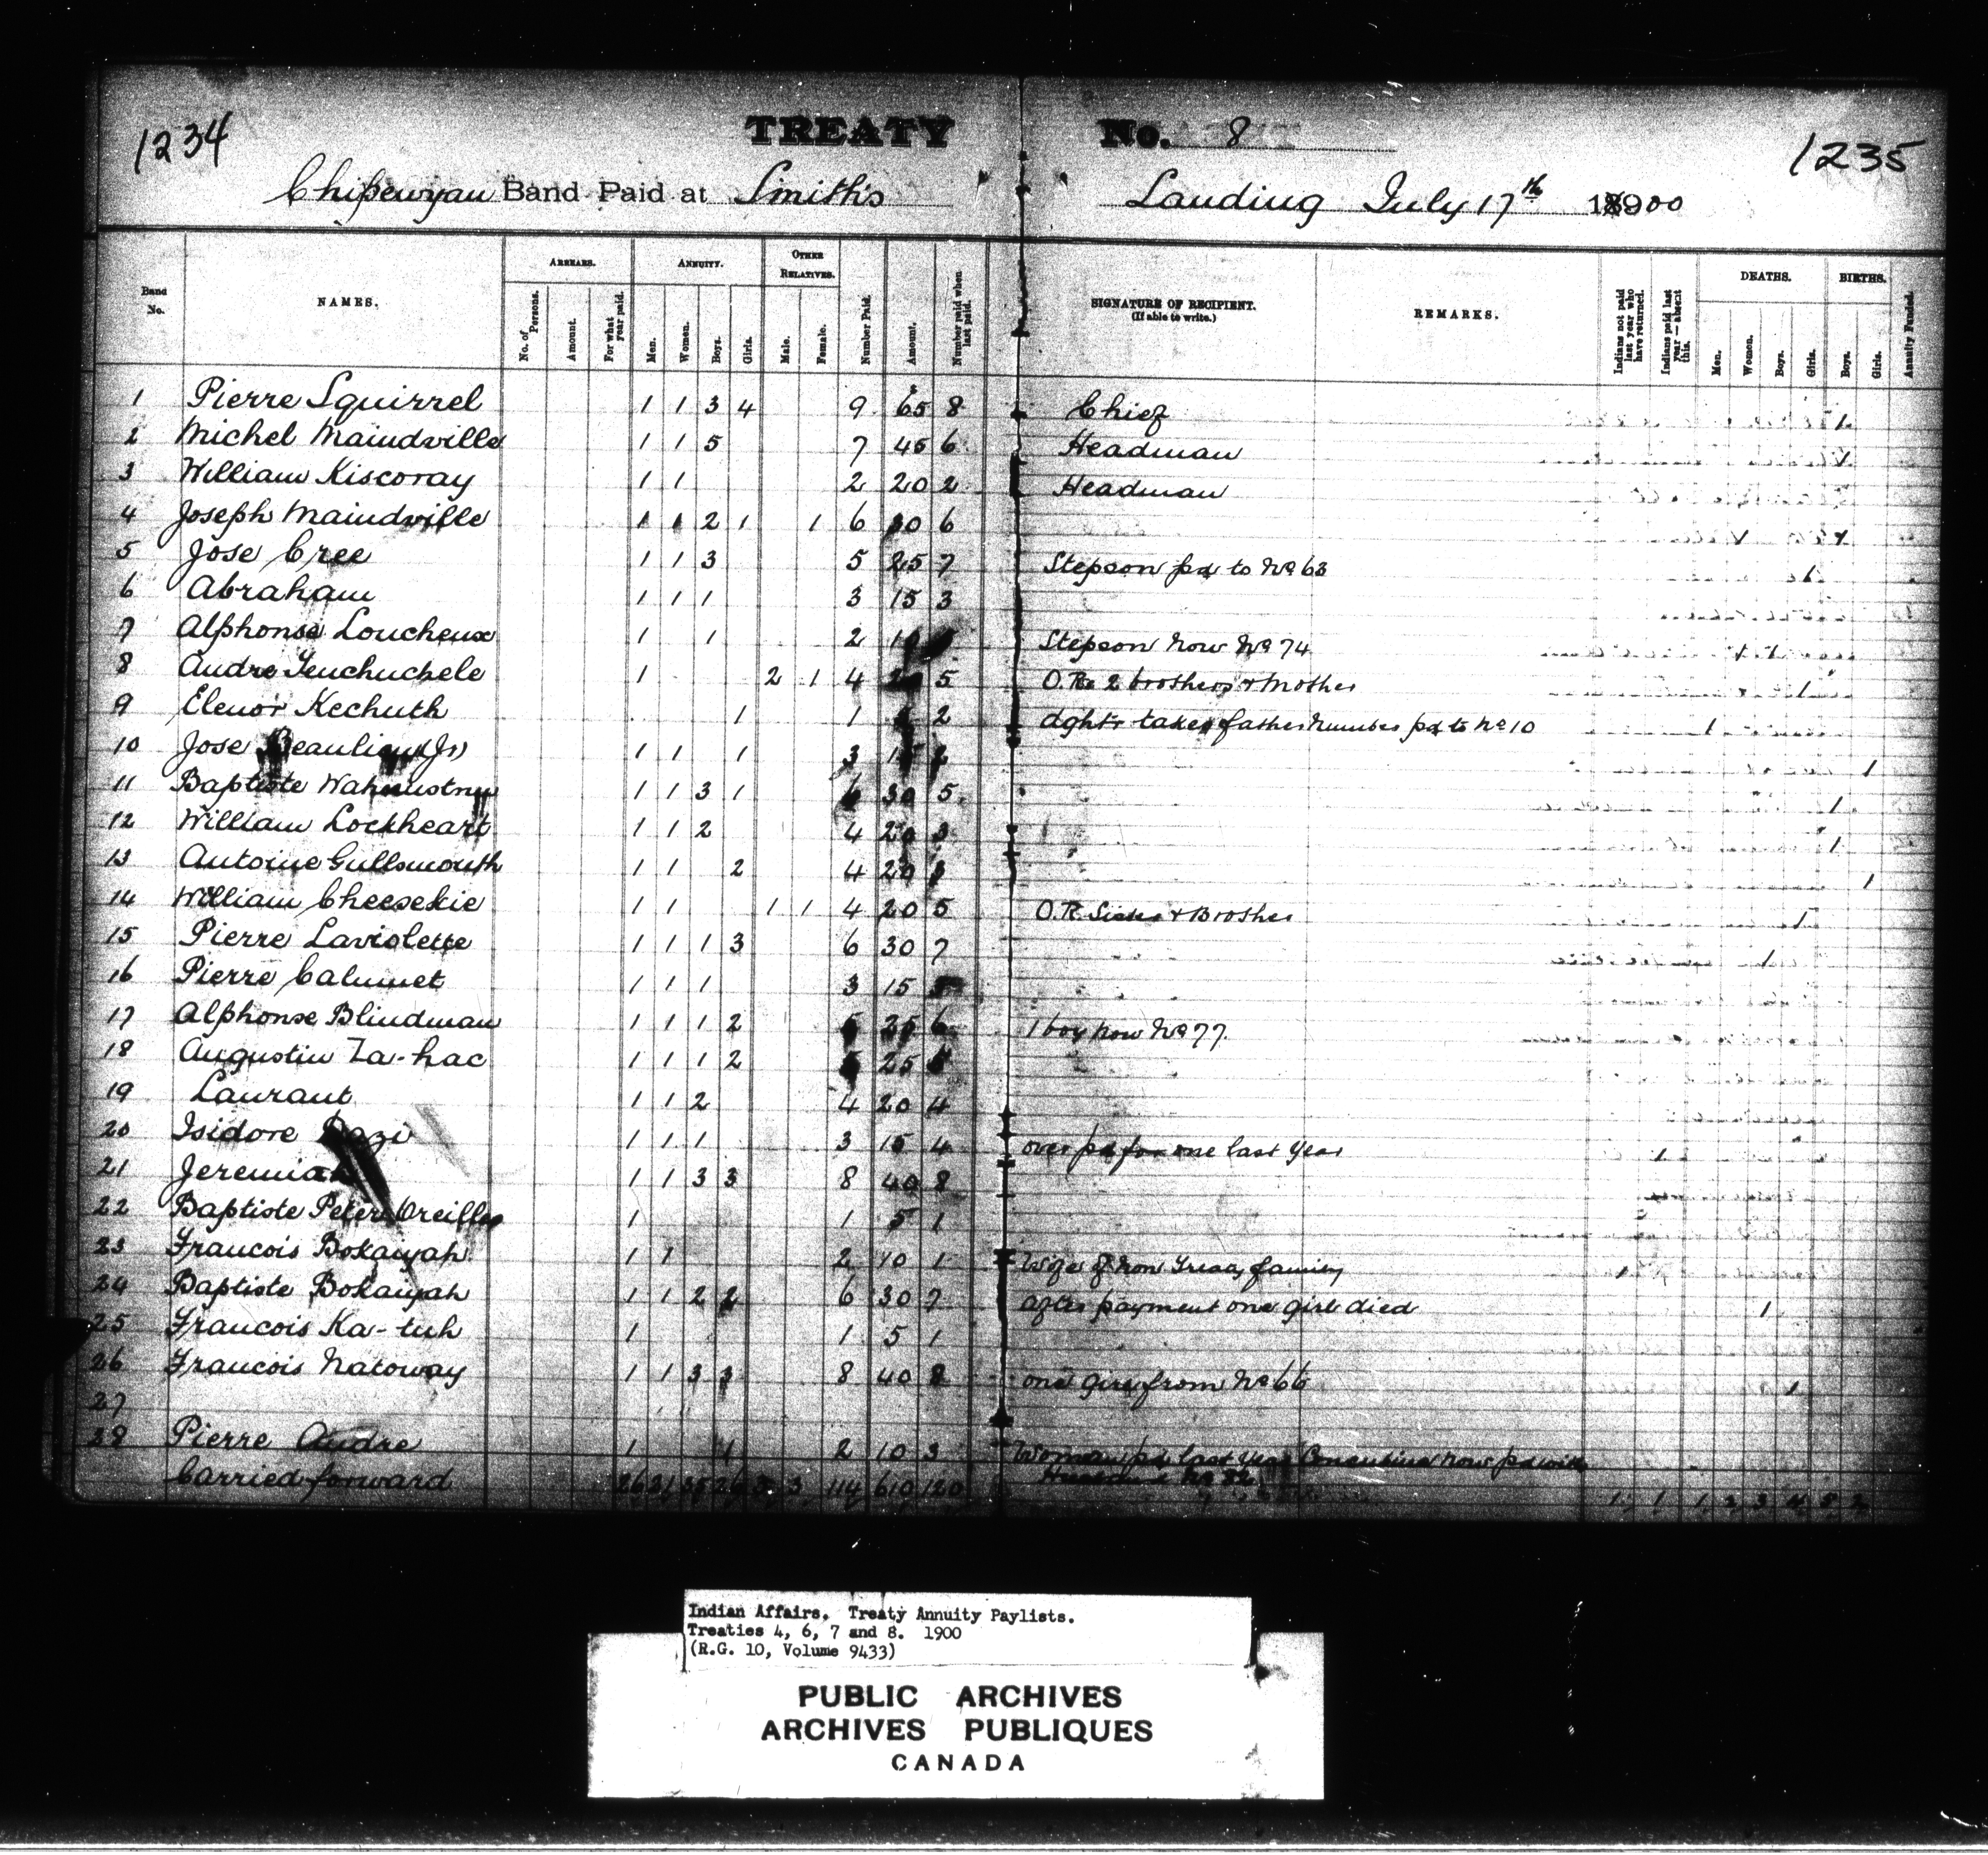 1234 TREATY No. 8 1235
Chipewyan Band Paid at Smith's Landing July 17th 1900
Band No. NAMES. ARREARS. ANNUITY. OTHER RELATIVES. SIGNATURE OF RECIPIENT. (If able to write.) REMARKS. DEATHS. BIRTHS.
No. of Persons. Amount. For what year paid. Men. Women. Boys. Girls. Male. Female. Number Paid. Amount. Number paid when last paid. Indians not paid last year who have returned. Indians paid last year—absent this. Men. Women. Boys. Girls. Boys. Girls. Annuity Funded.
1 Pierre Squirrel 1 1 3 4 9 65 8 Chief 1
2 Michel Maindville 1 1 5 7 45 6 Headman 1
3 William Kiscoray 1 1 2 20 2 Headman
4 Joseph Maindville 1 1 2 1 1 6 30 6
5 Jose Cree 1 1 3 5 25 7 Stepson pd to No 63 1
6 Abraham 1 1 1 3 15 3
7 Alphonse Loucheux 1 1 2 10 Stepson now No 74 1 1
8 Andre 1 2 1 4 20 5 O.R. 2 brothers & Mother 1
9 Elenor Kechuth 1 1 2 dghtr takes father number pd to No 10 1
10 Jose Beaulieu (Jr) 1 1 1 3 15 2 1
11 Baptiste 1 1 3 1 6 30 5 1
12 William Lockheart 1 1 2 4 20 3 1
13 Antoine Gullsmouth 1 1 2 4 20 3 1
14 William Cheesekie 1 1 1 1 4 20 5 O.R. Sister & Brother 1
15 Pierre Laviolette 1 1 1 3 6 30 7 1
16 Pierre Calumet 1 1 1 3 15
17 Alphonse Blindman 1 1 1 2 5 25 6 1 boy now No 77.
18 Augustin Za-hac 1 1 1 2 5 25
19 Laurant 1 1 2 4 20 4
20 Isidore 1 1 1 3 15 4 over pd for one last year 1
21 Jeremiah 1 1 3 3 8 40 8
22 Baptiste Peter Oreilles 1 1 5 1
23 Francois Bokaiyah 1 1 2 10 1 Wife of non Treaty family 1
24 Baptiste Bokaiyah 1 1 2 2 6 30 7 after payment one girl died 1
25 Francois Ka-tuh 1 1 5 1
26 Francois Natoway 1 1 3 3 8 40 8 one girl from No 66 1
27
28 Pierre Andre 1 1 2 10 3 Woman pd last year now pd with
Carried forward 26 21 35 26 3 3 114 610 120 Husband No 82 1 1 1 2 3 4 5 2
Indian Affairs. Treaty Annuity Paylists.
Treaties 4, 6, 7 and 8. 1900
(R.G. 10, Volume 9433)
PUBLIC ARCHIVES
ARCHIVES PUBLIQUES
CANADA